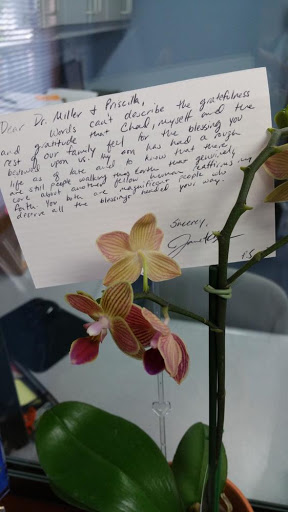 Dear Dr. Miller & Priscilla,
Words can't describe the gratefulness
and gratitude that Chad, myself and the
rest of our family feel for the blessing you
bestowed upon us. My son has had a rough
life as of late and to know that there
are still people walking this Earth that genuinely
care about another fellow human reaffirms my
faith. You both are magnificent people who
deserve all the blessings headed your way.
Sincerely,
P.S.